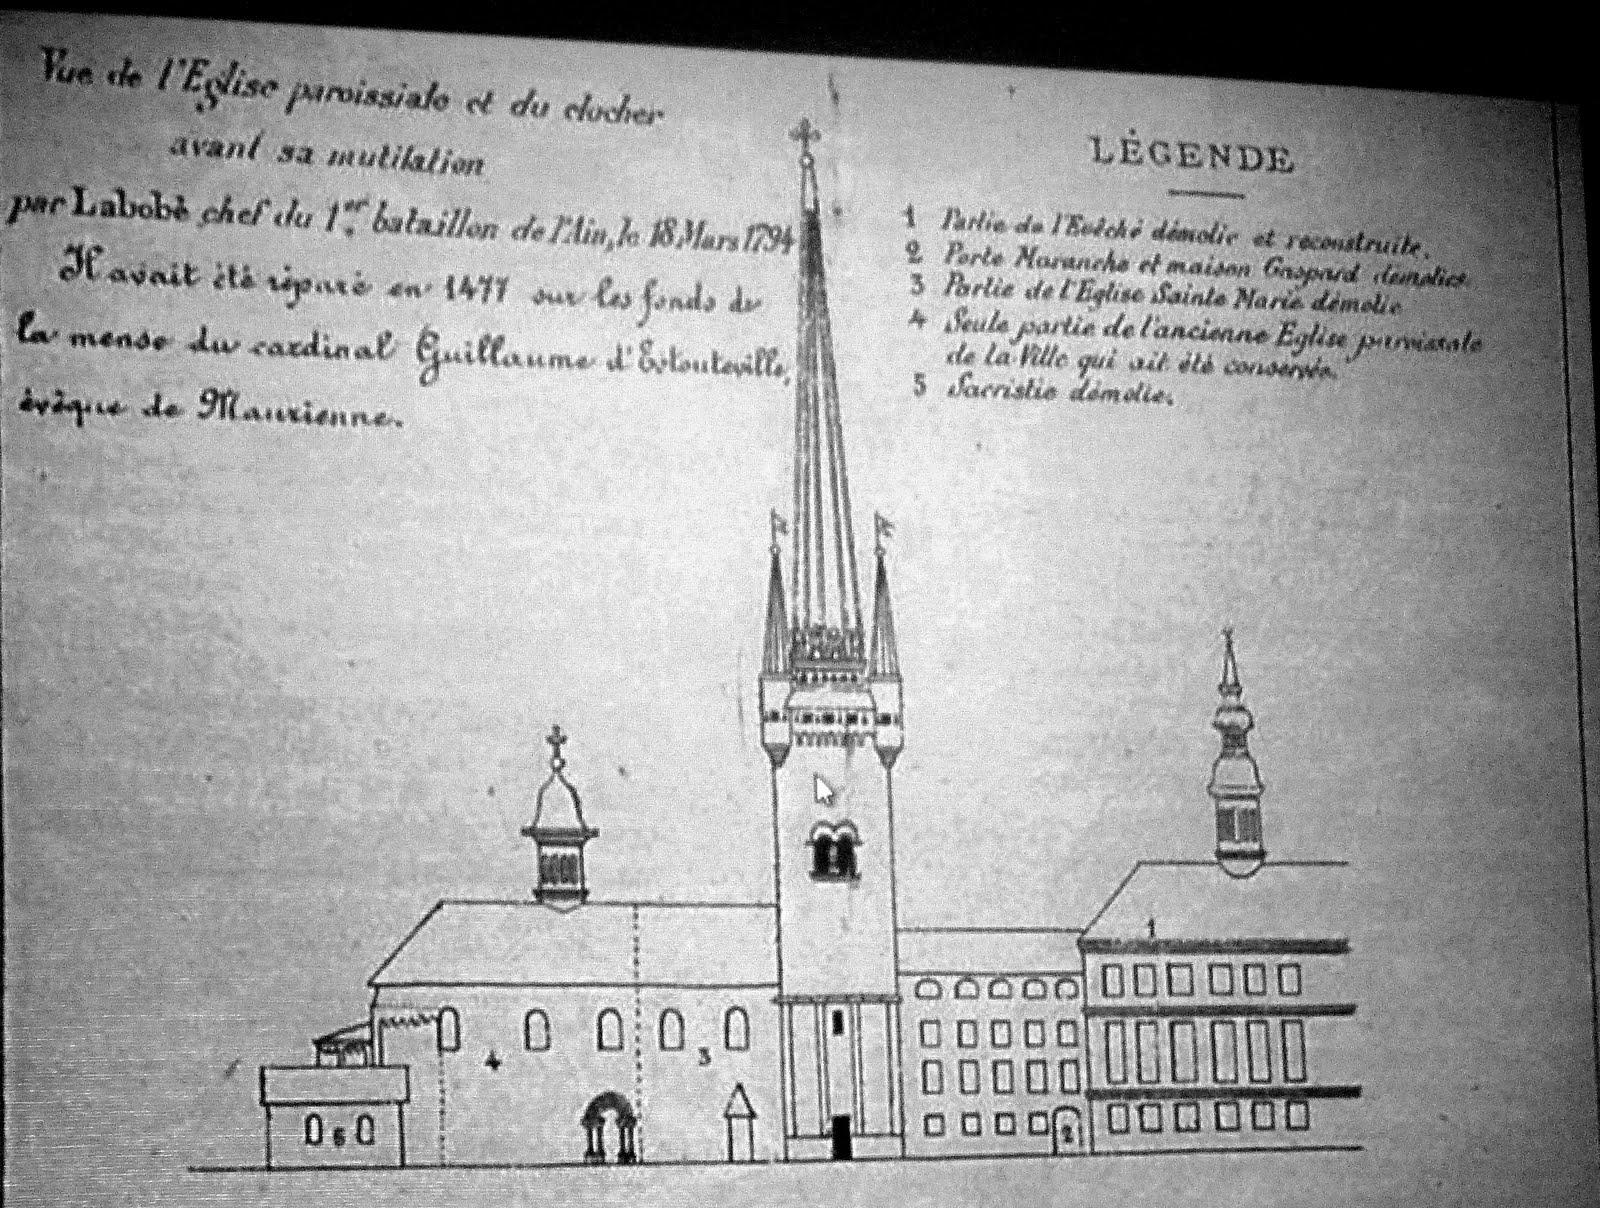 Vue de l'Eglise paroissiale et du clocher
avant sa mutilation
par Labobè chef du 1er bataillon de l'Ain, le 18 Mars 1794
Il avait été réparé en 1477 sur les fonds de
la mense du cardinal Guillaume d'Estouteville,
évêque de Maurienne.
LÉGENDE
1 Partie de l'Evêché démolie et reconstruite.
2 Porte Maranche et maison Gaspard demolies.
3 Partie de l'Eglise Sainte Marie démolie
4 Seule partie de l'ancienne Eglise paroissiale
de la Ville qui ait été conservée.
5 Sacristie démolie.
1
4
3
5
2